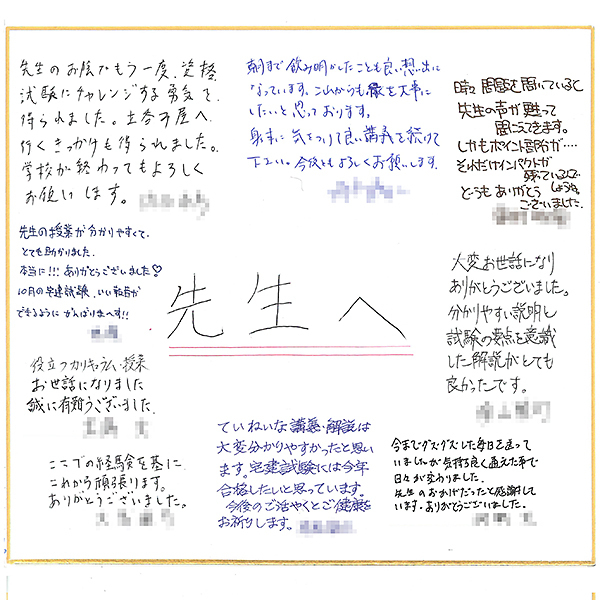 先生のお陰でもう一度、資格
試験にチャレンジする勇気を
得られました。土各す屋へ
行くきっかけも得られました。
学校が終わってもよろしく
お願いします。
朝まで飲み明かしたことも良い想い出に
なっています。これからも縁を大事に
したいと思っております。
身体に気をつけて良い講義を続けて
下さい。今後ともよろしくお願いします。
時々問題を聞いていると
先生の声が甦って
聞こえてきます。
しかもポイント部分が‥‥
それだけインパクトが
残っているので
どうもありがとう
ございました。
先生の授業が分かりやすくて、
とても助かりました。
本当に!!!ありがとうございました♡
10月の宅建試験、いい報告が
できるようにがんばりまーす!!
先生へ
大変お世話になり
ありがとうございました。
分かりやすい説明と
試験の要点を意識
した解説がとても
良かったです。
役立つカリキュラム・授業
お世話になりました
誠に有難うございました。
ていねいな講義・解説は
大変分かりやすかったと思い
ます。宅建試験には今年
合格したいと思っています。
今後のご活やくとご健康を
お祈りします。
ここでの経験を基に
これから頑張ります。
ありがとうございました。
今までグズグズした毎日を送って
いましたが気持ち良く通えた事で
日々が変わりました。
先生のおかげだったと感謝して
います。ありがとうございました。